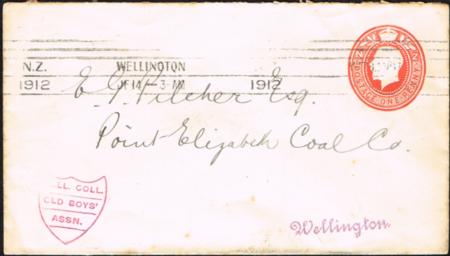 N.Z. WELLINGTON
1912 JE 14 - 3 - AM 1912
POSTAGE ONE PENNY
E. G. Pilcher Esq.
Point Elizabeth Coal Co.
LL. COLL.
OLD BOYS'
ASSN.
Wellington.